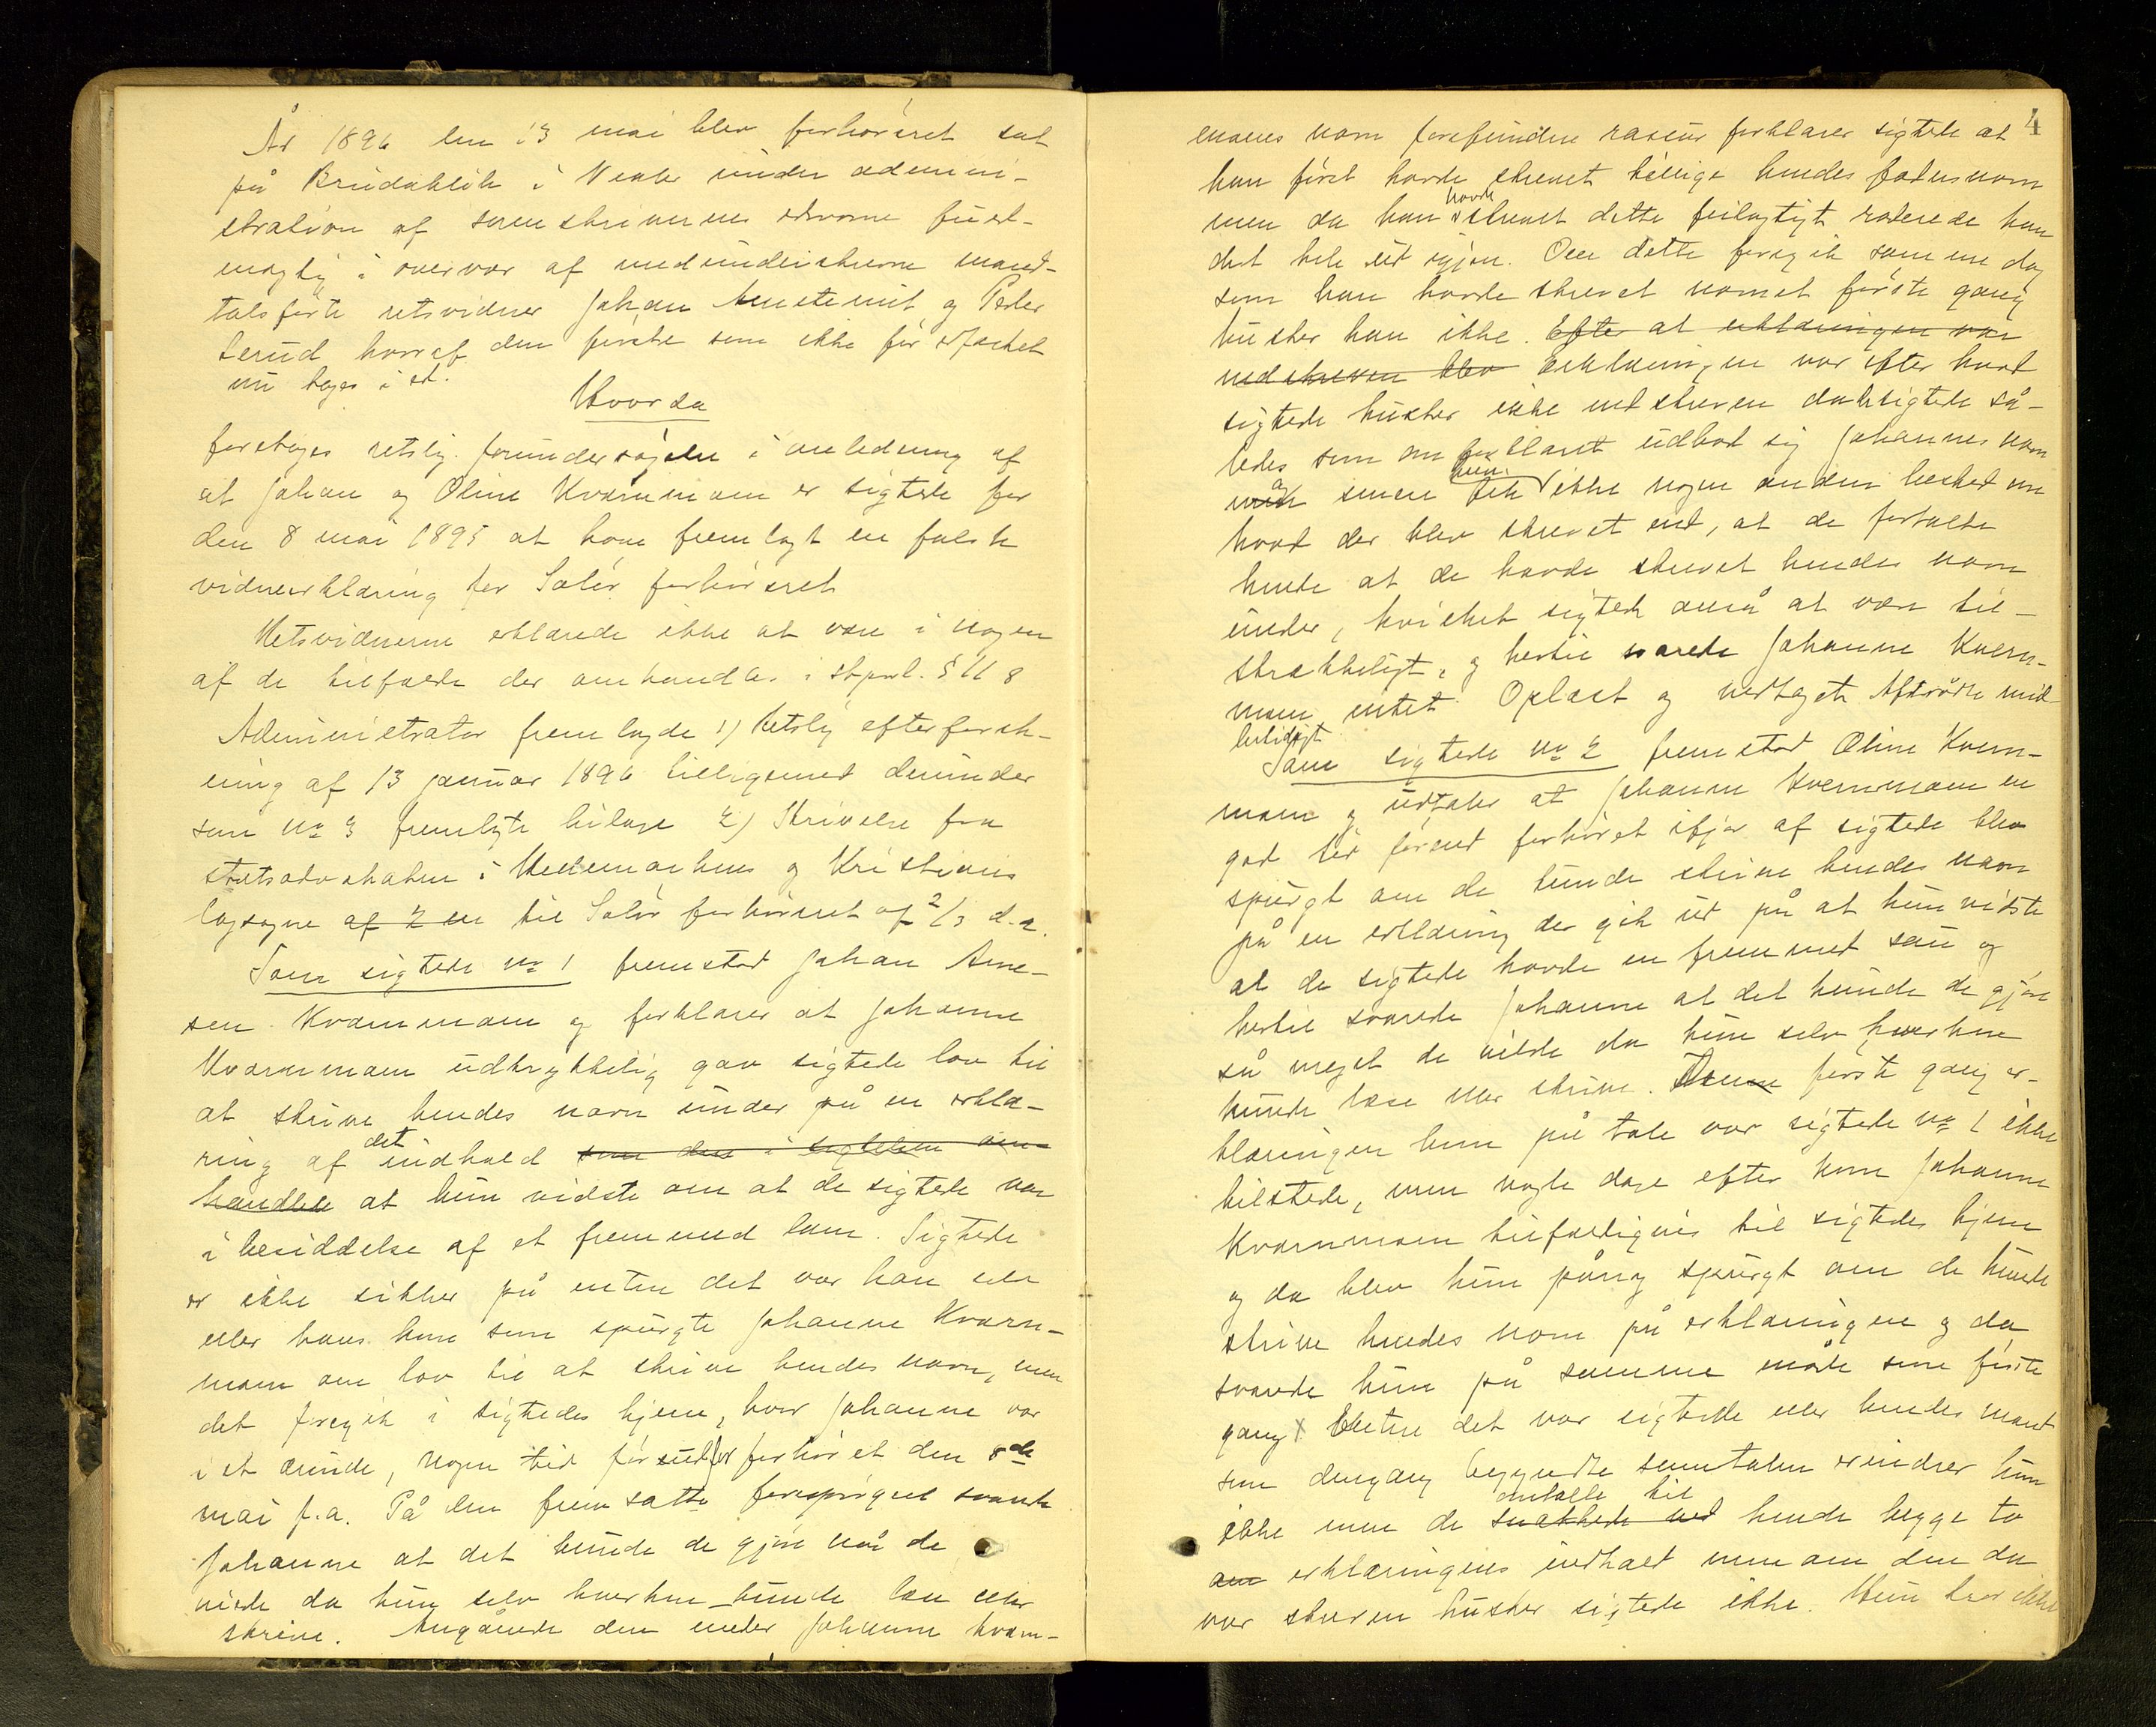 År 1896 den 13 mai blev forhørsret sat
på Brudaklik i Vaaler under admini-
stration af sorenskriverens edsvorne fuld-
mægtig i overvær af medunderskrevne mand-
talsførte retsvidner Johan Amstemit og Peder
Lerud hvoraf den første som ikke før edfæstet
nu toges i ed.
Hvorda
foretages retslig forundersøgelse i anledning af
at Johan og Oline Kværnmoen er sigtede for
den 8 mai 1895 at have fremlagt en falsk
vidneerklæring for Solør forhørsret
Retsvidnerne erklærede ikke at være i nogen
af de tilfælde der omhandles i stprl. § 118
Administrator fremlagde 1) Retslig efterforsk-
ning af 13 januar 1896 tilligemed derunder
som No 3 fremlagte bilage 2) Skrivelse fra
statsadvokaten i Hedemarkens og Kristians
lagsogne af 2 en til Solør forhørsret af 2/3 d.a.
Som sigtede No 1 fremstod Johan Arne-
sen Kværnmoen og forklarer at Johanne
Kværnmoen udtrykkelig gav sigtede lov til
at skrive hendes navn under på en erklæ-
ring af det indhold som den i sigtelsen om-
handlede at hun vidste om at de sigtede var
i besiddelse af et fremmed lam. Sigtede
er ikke sikker på enten det var han selv
eller hans kone som spurgte Johanne Kværn-
moen om lov til at skrive hendes navn, men
det foregik i sigtedes hjem, hvor Johanne var
i et ærinde, nogen tid førend for forhøret den 8de
mai f.a. På den fremsatte forespørgsel svarede
Johanne at det kunde de gjøre når de
vilde da hun selv hverken kunde læse eller
skrive. Angående den under Johanne Kværn-
4
moens navn forefundne rasur forklarer sigtede at
han først havde skrevet tillige hendes farsnavn
men da han havde skrevet dette feilagtigt raderede han
det hele ud igjen. Om dette foregik samme dag
som han havde skrevet navnet første gang
husker han ikke. Efter at erklæringen var
nedskreven blev Erklæringen var efter hvad
sigtede husker ikke nedskreven da sigtede så-
ledes som om forklaret udbad sig Johannes navn
og men senere fik hun ikke nogen anden besked om
hvad der blev skrevet end, at de fortalte
hende at de havde skrevet hendes navn
under, hvilket sigtede anså at være til-
strækkeligt, og hertil svarede Johanne Kværn-
moen intet. Oplæst og vedtaget. Aftrådte mid-
lertidigt
Som sigtede No 2 fremstod Oline Kværn-
moen og udtaler at Johanne Kværnmoen en
god tid førend forhøret ifjor af sigtede blev
spurgt om de kunde skrive hendes navn
på en erklæring der gik ud på at hun vidste
at de sigtede havde en fremmed sau og
hertil svarede Johanne at det kunde de gjøre
så meget de vilde da hun selv hverken
kunde læse eller skrive. Denne første gang er-
klæringen kom på tale var sigtede No 1 ikke
tilstede, men nogle dage efter kom Johanne
Kværnmoen tilfældigvis til sigtedes hjem
og da blev hun påny spurgt om de kunde
skrive hendes navn på erklæringen og da
svarede hun på samme måde som første
gang. Enten det var sigtede eller hendes mand
som dengang begyndte samtalen erindrer hun
ikke men de snakkede ved omtalte til hende begge to
om erklæringens indhold men om den da
var skreven husker sigtede ikke. Hun tror ikke